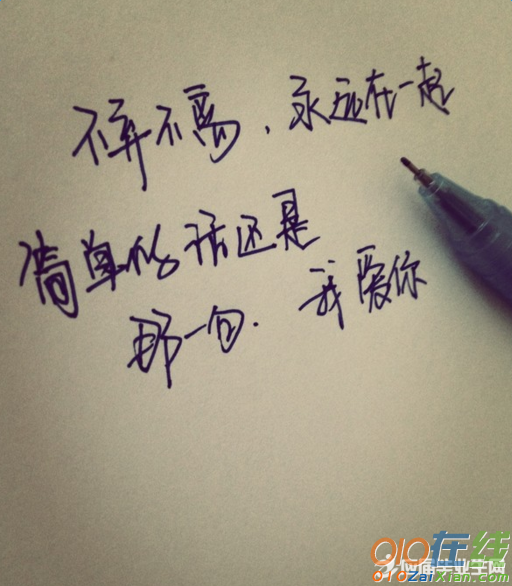 不弃不离，永远在一起
简单的话还是
那一句. 我爱你
910在线
应届毕业生网
910ZaiXian.com